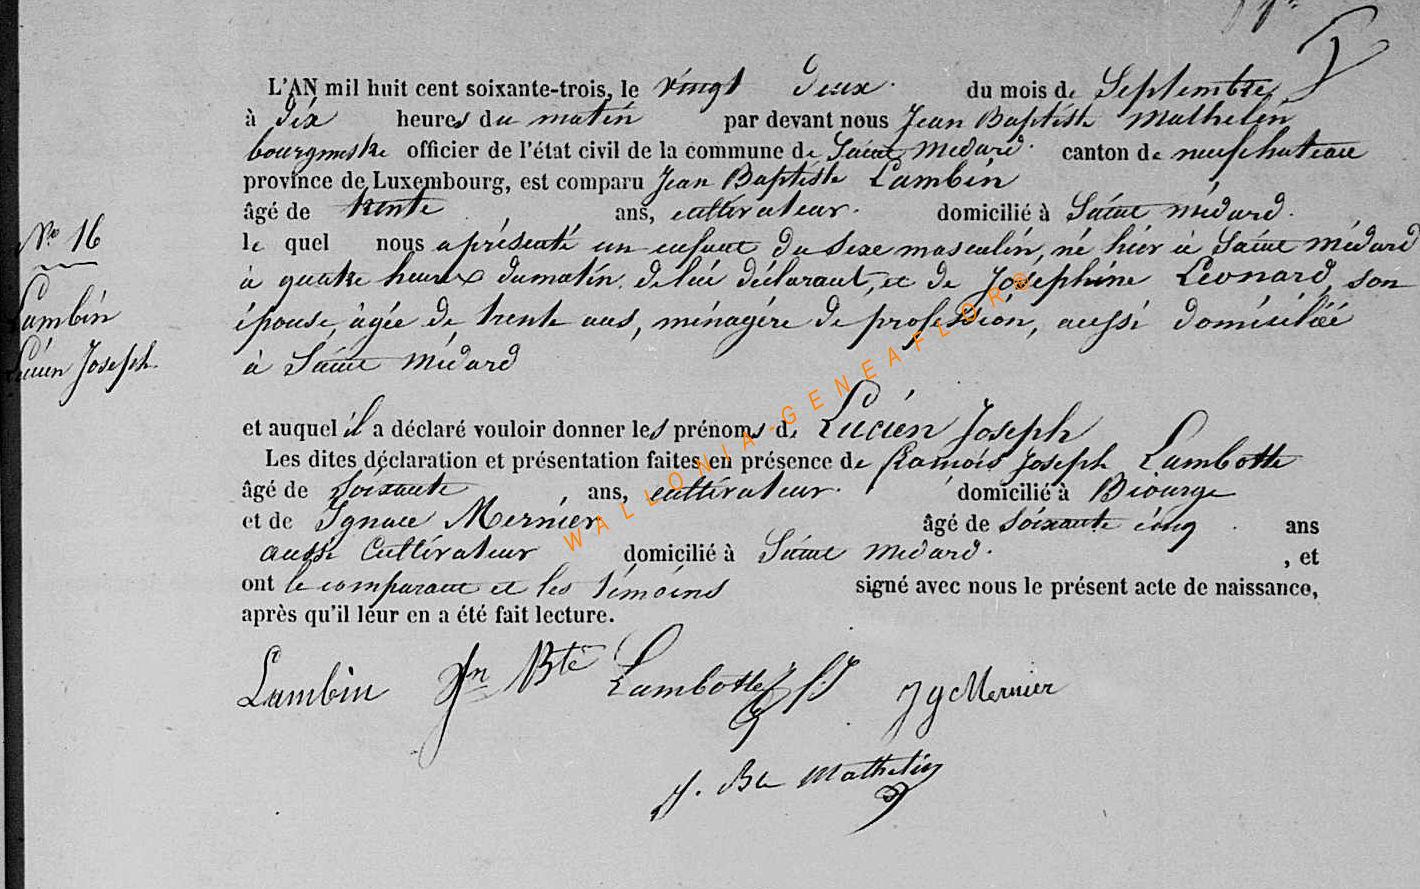 L'AN mil huit cent soixante-trois, le vingt deux du mois de Septembre
à dix heures du matin par devant nous Jean Baptiste Mathelin
bourgmestre officier de l'état civil de la commune de Saint Médard canton de neufchateau
province de Luxembourg, est comparu Jean Baptiste Lambin
âgé de trente ans, cultivateur domicilié à Saint médard.
N° 16
le quel nous a présenté un enfant du sexe masculin, né hier à Saint Médard
à quatre heures du matin de lui déclarant, et de Joséphine Leonard, son
Lambin
épouse, agée de trente ans, ménagére de profession, aussi domiciliée
Lucien Joseph
à Saint Médard
et auquel il a déclaré vouloir donner les prénoms de Lucien Joseph
Les dites déclaration et présentation faites en présence de Joseph Lambotte
âgé de soixante ans, cultivateur domicilié à Biourge
et de Ignace Mernier âgé de soixante cinq ans
aussi Cultivateur domicilié à Saint médard. , et
ont le comparant et les témoins signé avec nous le présent acte de naissance,
après qu'il leur en a été fait lecture.
Lambin Jn Bte Lambotte f. J Jg Mernier
J. Bte Mathelin
WALLONIA-GENEAFLOR®